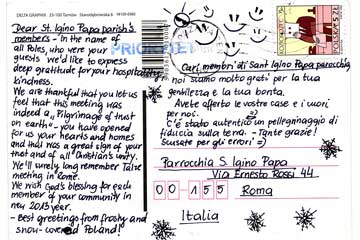 DELTA GRAPHIX
33-100 Tarnów
PRIORITET
Dear St. Igino Papa parish's
members - In the name of
all Poles, who were your
guests we'd like to express
deep gratitude for your hospitality,
kindness.
We are thankful that you let us
feel that this meeting was
indeed a „Pilgrimage of trust
on earth" - you have opened
for us your hearts and homes
and that was a great sign of your
trust and of all Christian's unity.
We'll surely long remember Taise
meeting in Rome.
We wish God's blessing for each
member of your community in
new 2013 year.
- Best greetings from frosty and
snow-covered Poland!
Cari membri di Sant Igino Papa parocchia
noi siamo molto grati per la tua
gentilezza e la tua bonta.
Avete aferto le vostre case e i cuori
per noi.
C'é stato autentico un pelleginaggio di
fiducia sulla terra. - Tante grazie!
Scusate per gli errori
Parrocchia S. Igino Papa
Via Ernesto Rossi 44
00 - 155 Roma
Italia